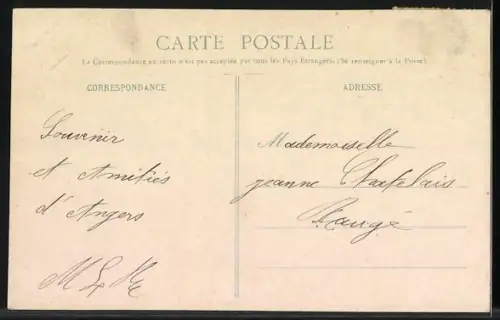 CARTE POSTALE
La Correspondance au verso n'est pas acceptée par tous les Pays Etrangers. (Se renseigner à la Poste).
CORRESPONDANCE
ADRESSE
Souvenir
et Amitiés
d'Angers
Mademoiselle
jeanne Chatelais